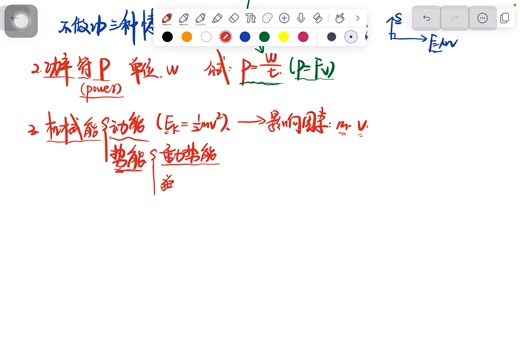 不做功三种情
S
2.功率 符 P 单位.W 公式: P=W/t (P=Fv)
(power)
3.机械能 { 动能 (Eₖ=½mv²). → 影响因素: m. v.
势能 { 重力势能